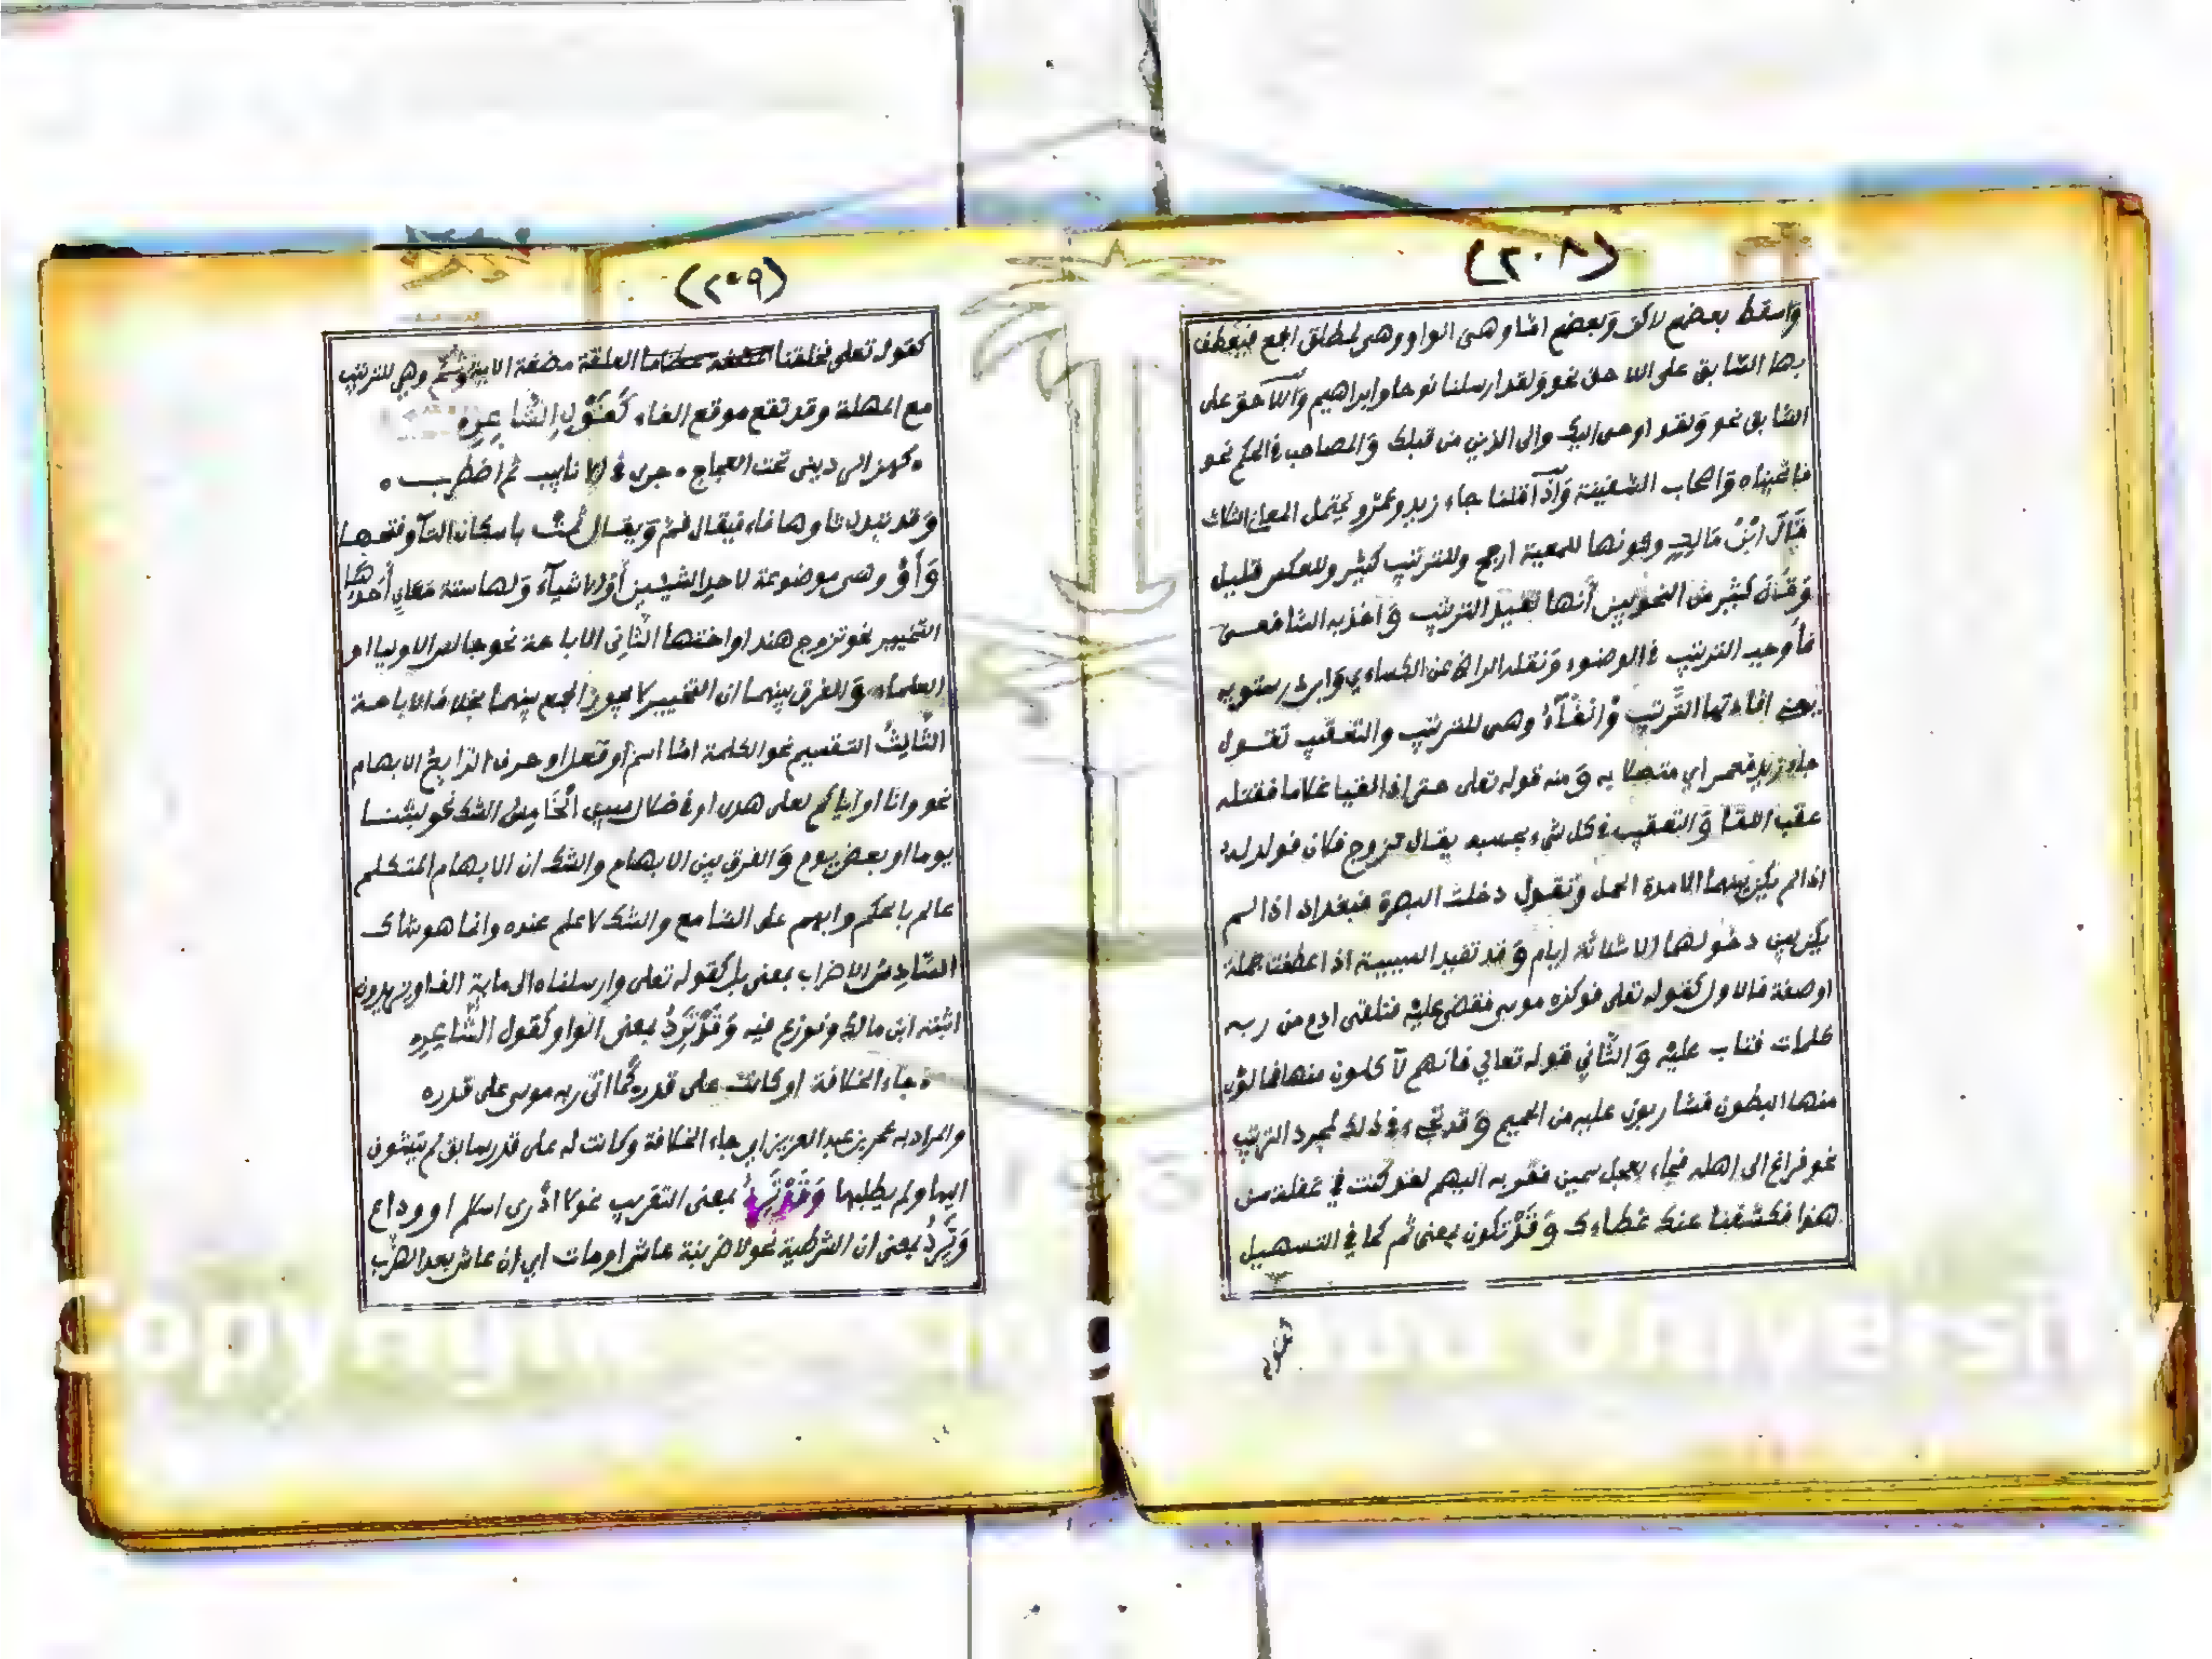 (٢٠٨)
واسقط بعضهم لاكن وبعضهم اما وهي الواو وهي لمطلق الجمع فيعطف
بها السابق على اللاحق نحو ولقد ارسلنا نوحا وابراهيم واللاحق على
السابق نحو ولقد اوحى اليك والى الذين من قبلك والمصاحب في الحكم نحو
فانجيناه واصحاب السفينة واذا قلنا جاء زيد وعمرو يحتمل المعاني الثلاث
قال ابن مالك وكونها للمعية ارجح وللترتيب كثير وللعكس قليل
وقال كثير من النحويين أنها تفيد الترتيب واخذ به الشافعي
فأوجب الترتيب في الوضوء ونقله الرازي عن الكساءي وابن درستويه
يعني افادتها الترتيب والفآء وهي للترتيب والتعقيب تقول
جاء زيد فعمر اي متصلا به ومنه قوله تعلى حتى اذا لقيا غلاما فقتله
عقب اللقا والتعقيب في كل شيء بحسبه يقال تزوج فكان فولد له
اذا لم يكن بينهما الا مدة الحمل وتقول دخلت البصرة فبغداد اذا لم
يكن بين دخولهما الا ثلاثة ايام وقد تفيد السببية اذا عطفت جملة
او صفة فالاول كقوله تعلى فوكزه موسى فقضى عليه فتلقى ادم من ربه
كلمات فتاب عليه والثاني قوله تعالي فانهم لآكلون منها فمالؤن
منها البطون فشاربون عليه من الحميم وقد تجيء في ذلك لمجرد الترتيب
نحو فراغ الى اهله فجاء بعجل سمين فقربه اليهم لقد كنت في غفلة من
هذا فكشفنا عنك غطاءك وقد تكون بمعنى ثم كما في التسهيل
كقوله
(٢٠٩)
كقوله تعلى فخلقنا العلقة مضغة الاية وثم وهي للترتيب
مع المهلة وقد تقع موقع الفاء كقول الشاعره
كهز الرديني تحت العجاج ٥ جرى في الانابيب ثم اضطرب ٥
وقد تبدل ثاوها فاء فيقال فم ويقال ثمت باسكان التآ وفتحها
وأو وهي موضوعة لاحد الشيئين أو الاشيآء ولها ستة معاني أحدها
التخيير نحو تزوج هندا او اختها الثاني الاباحة نحو جالس الاوليا او
العلماء والفرق بينهما ان التخيير لا يجوز الجمع بينهما بخلاف الاباحة
الثالث التقسيم نحو الكلمة اما اسم أو فعل او حرف الرابع الابهام
نحو وانا او اياكم لعلى هدى او في ضلال مبين الخامس الشك نحو لبثنا
يوما او بعض يوم والفرق بين الابهام والشك ان الابهام المتكلم
عالم بالحكم وابهم على السامع والشك لا علم عنده وانما هو شاك
السادس الاضراب بمعنى بل كقوله تعلى وارسلناه الى ماية الف او يزيدون
اثبته ابن مالك ونوزع فيه وقد ترد بمعنى الواو كقول الشاعره
٥ جاء الخلافة او كانت على قدره كما اتى ربه موسى على قدره
والمراد به عمر بن عبد العزيز اي جاء الخلافة وكانت له على قدر سابق لم يتشوف
اليها ولم يطلبها وقد ترد بمعنى التقريب نحو لا أدرى اسلم او وداع
وترد بمعنى ان الشرطية نحو لاضربنه عاش او مات اي ان عاش بعد الضرب